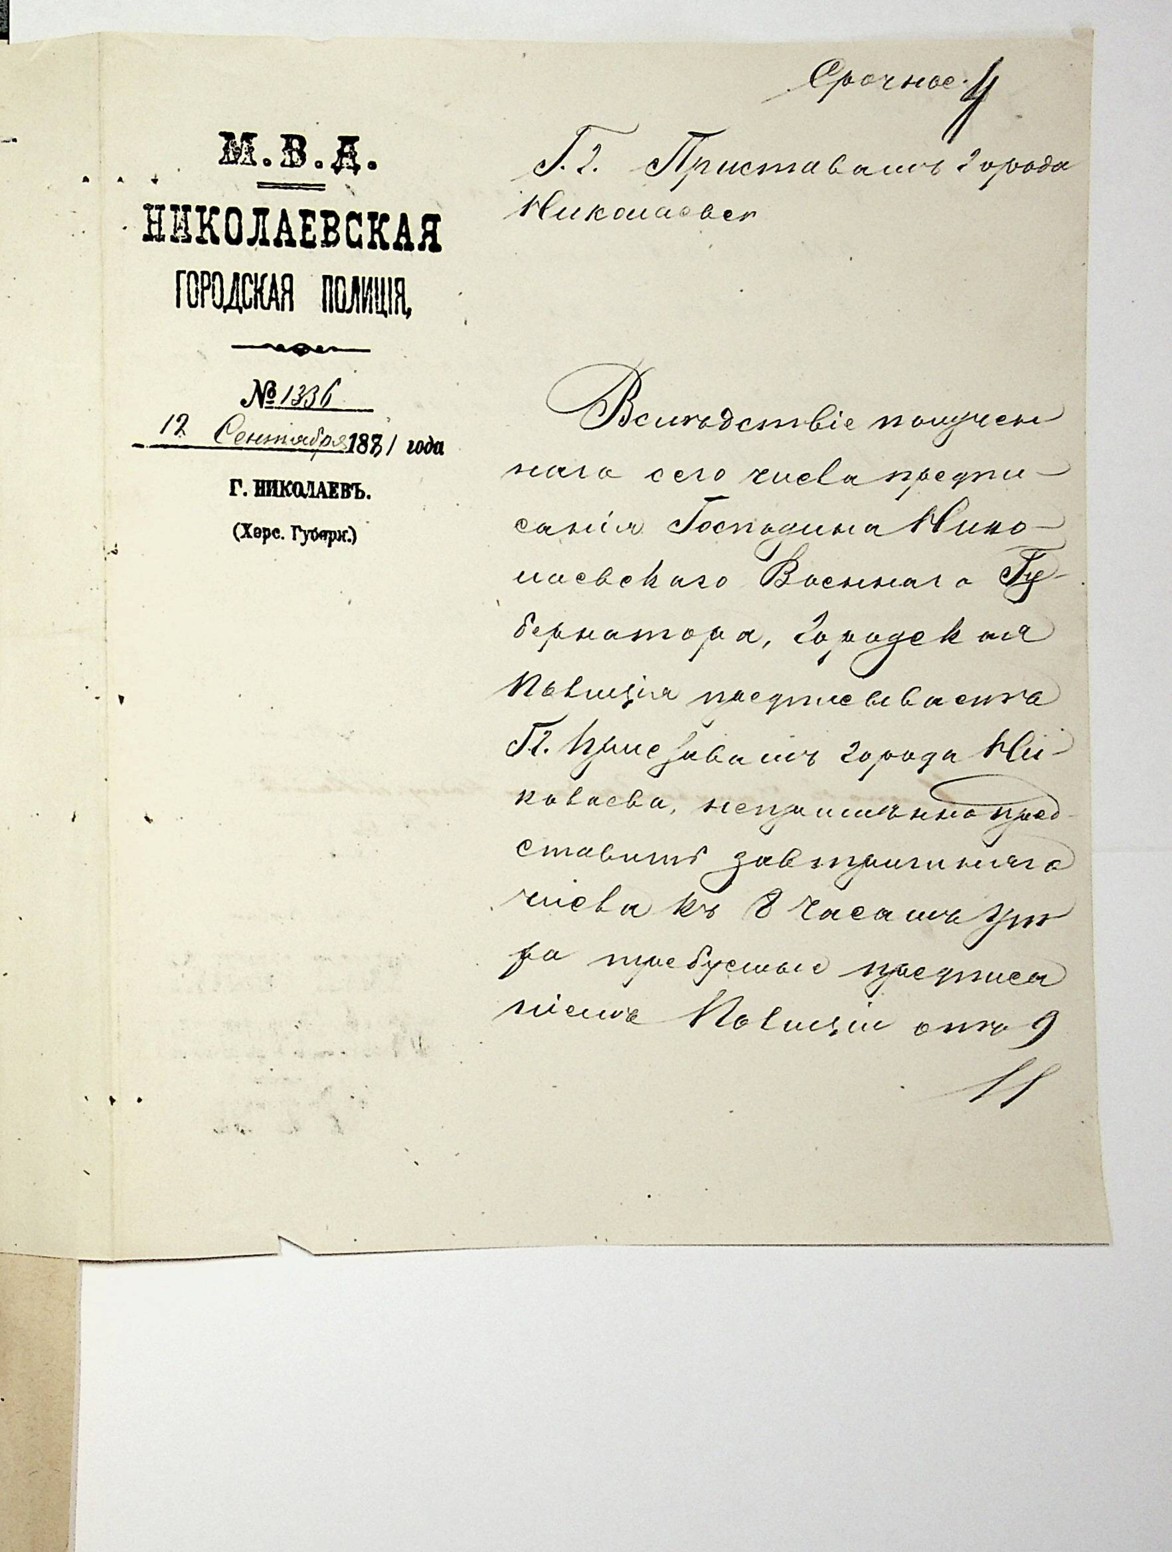 Срочное. 4
М.В.Д.
НИКОЛАЕВСКАЯ
ГОРОДСКАЯ ПОЛИЦІЯ,
№ 1336
12 Сентября 1881 года
Г. НИКОЛАЕВЪ.
(Херс. Губерн.)
Г.г. Приставамъ города
Николаева
Вслѣдствіе получен
наго сего числа предпи-
санія Господина Нико-
лаевскаго Военнаго Гу-
бернатора, городская
Полиція предписываетъ
Г.г. Приставамъ города Ни-
колаева, непремѣнно пред-
ставить завтрашняго
числа къ 8 часамъ ут
ра требуемые предписа
ніемъ Полиціи отъ 9